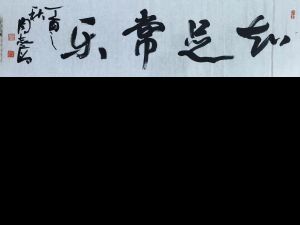 知足常乐
丁酉之
秋